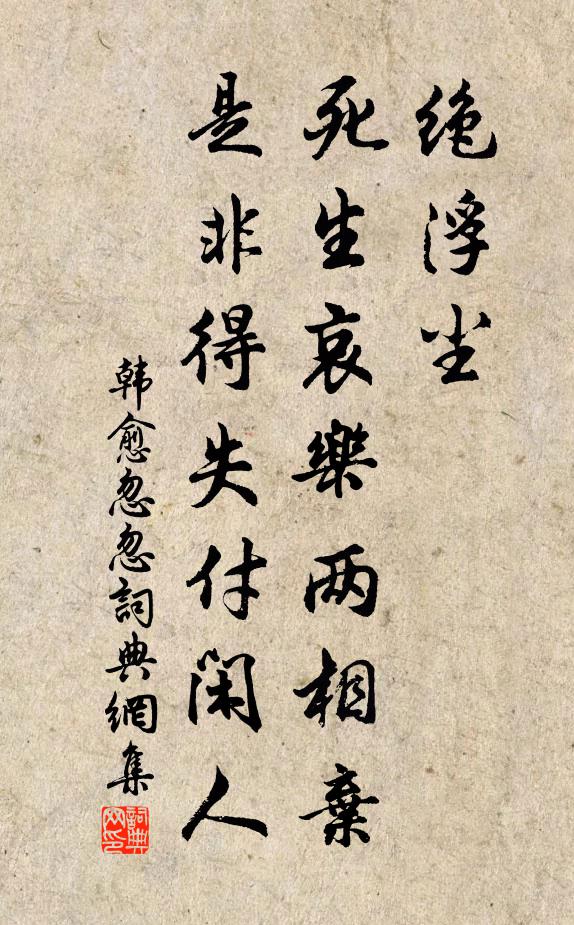 绝浮尘
死生哀樂两相棄
是非得失付闲人
韩愈忽忽詞典網集
詞典
网印